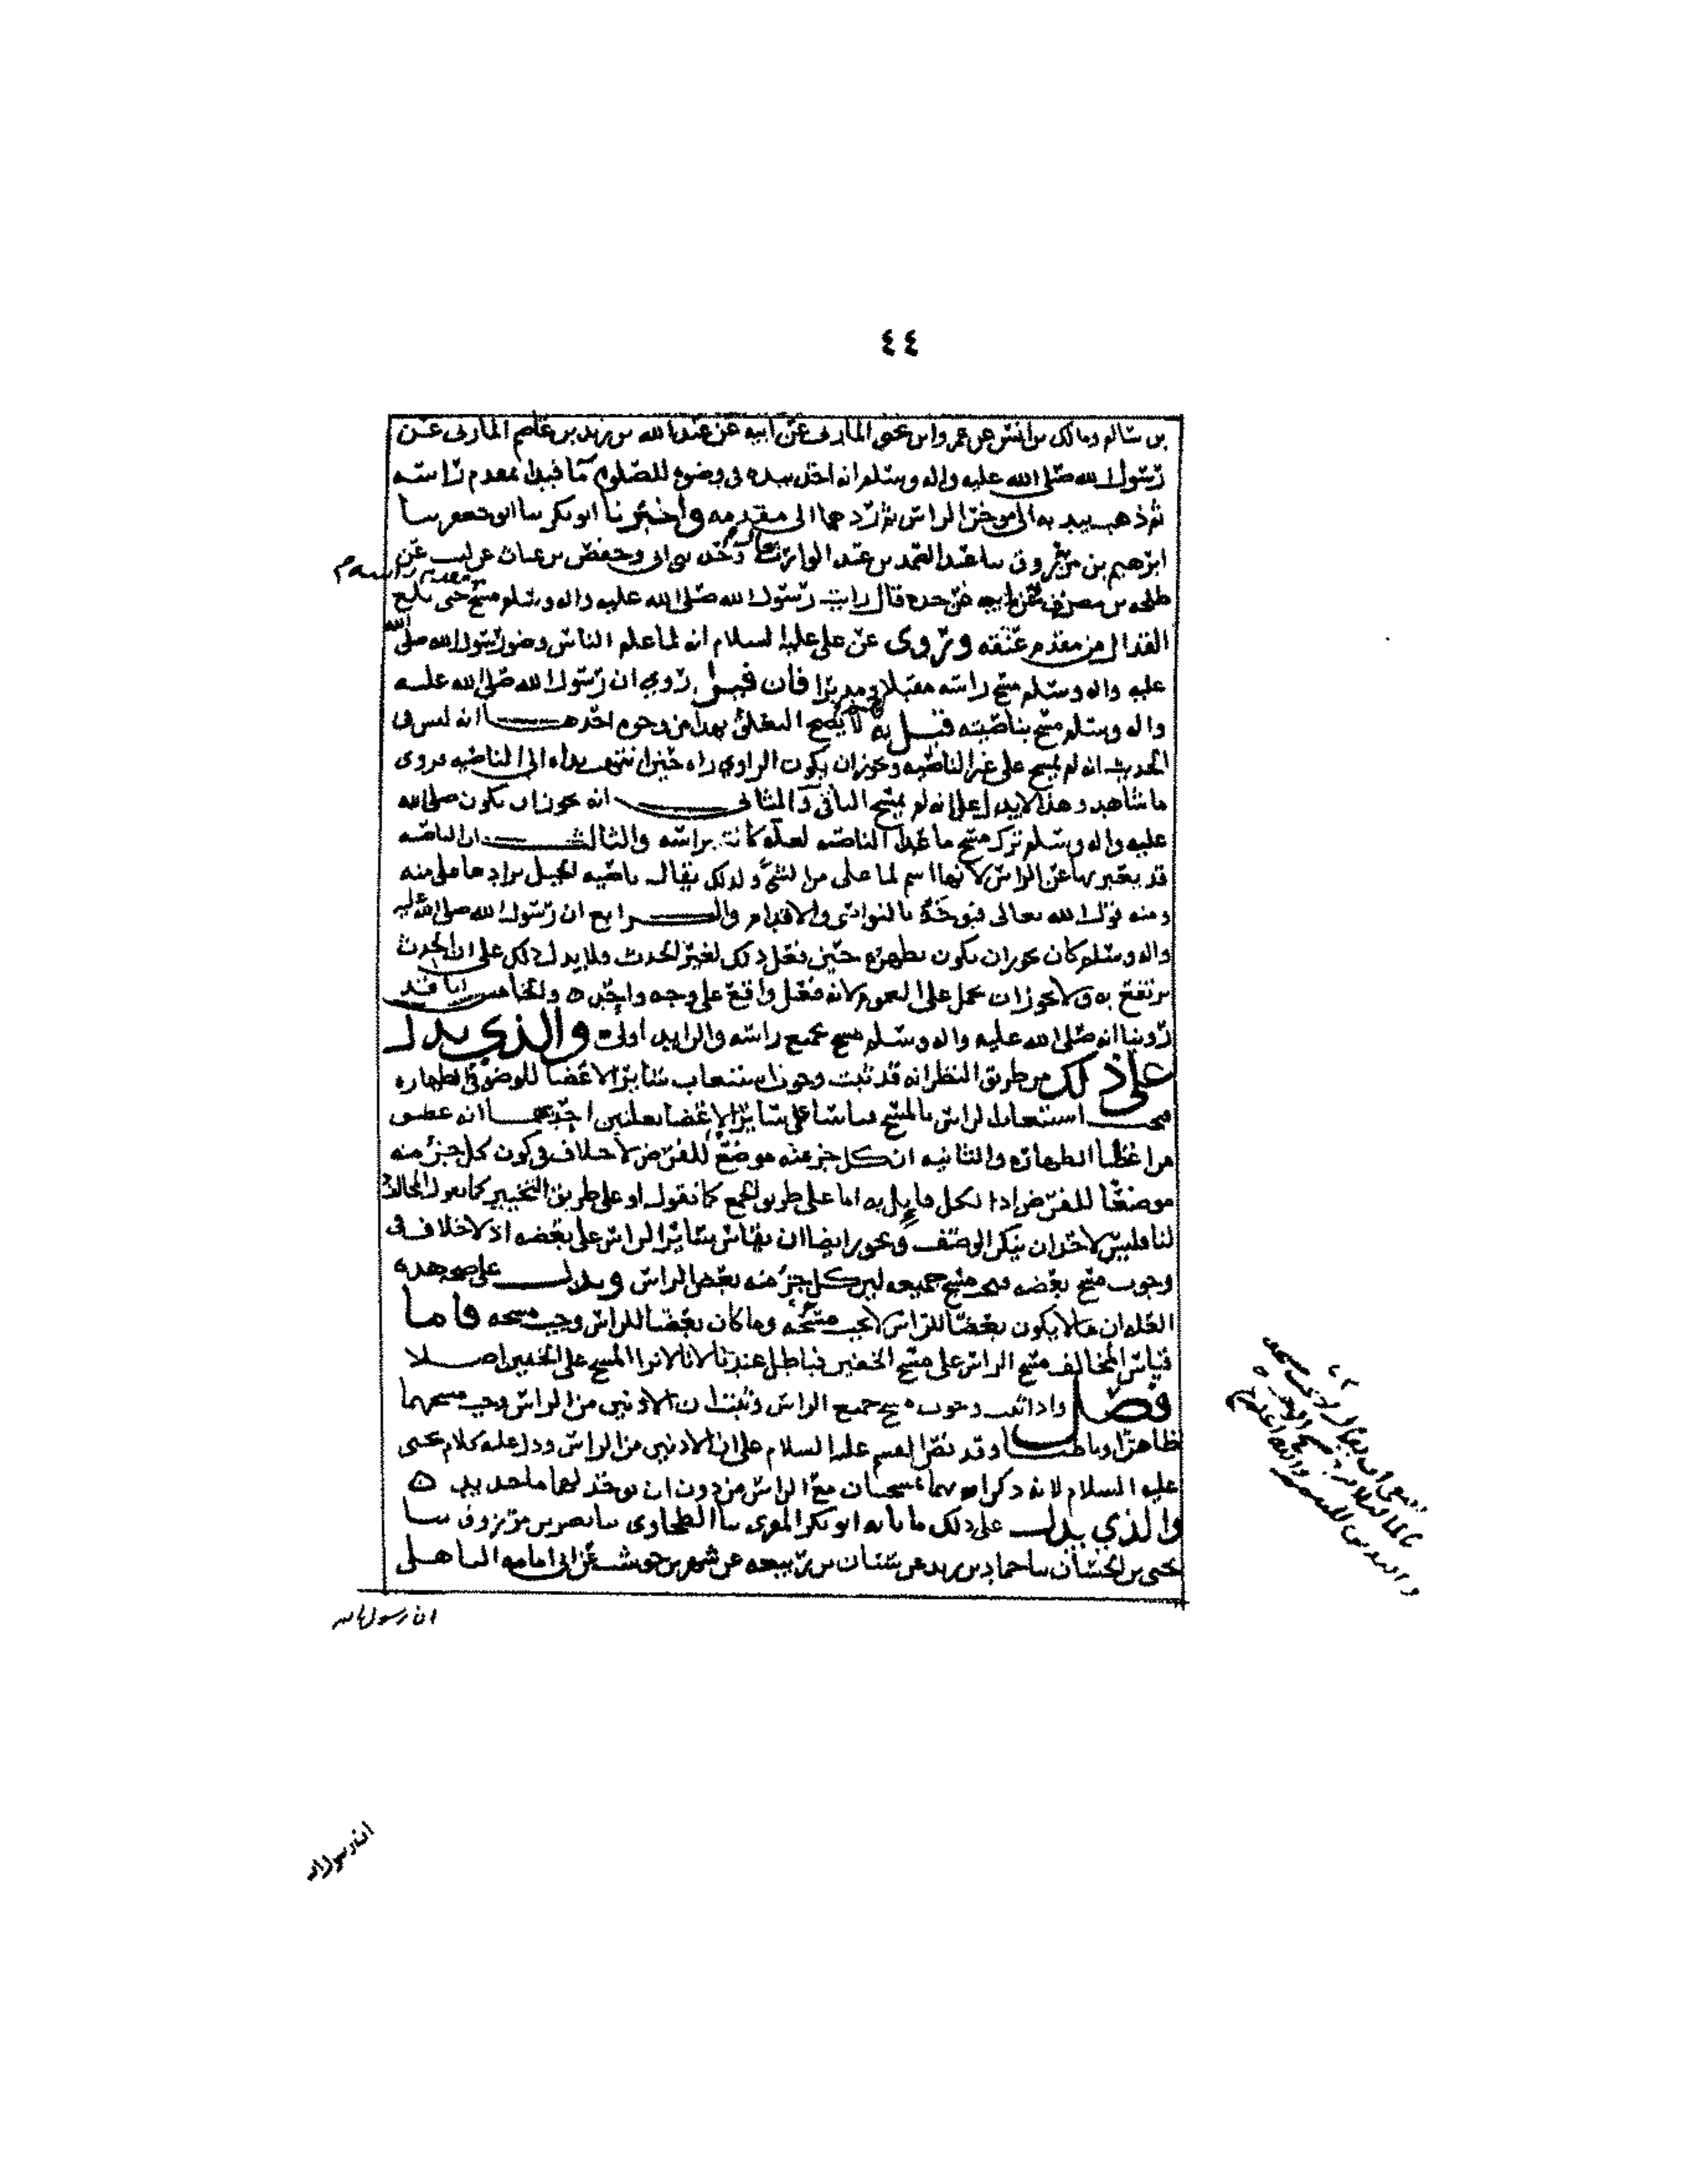 ٤٤
بن سالم ومالك بن انس عن عمرو بن يحيى المازني عن ابيه عن عبدالله بن زيد بن عاصم المازني عن
رسول الله صلى الله عليه واله وسلم انه اخذ بيده في وضوء للصلوة ما فبدا بمقدم راسه
ثم ذهب بيديه الى موخر الراس ثم ردهما الى مقدمه واخبرنا ابو بكر سا ابو جعفر سا
ابرهيم بن مرزوق سا عبد الصمد بن عبد الوارث سا ابي وحفص بن غياث عن ليث عن
طلحه بن مصرف عن ابيه عن جده قال رايت رسول الله صلى الله عليه واله وسلم مسح مقدم راسه حتى بلغ
القذال من مقدم عنقه وروى عن علي عليه السلام انه لما علم الناس وضوء رسول الله صلى الله
عليه واله وسلم مسح راسه مقبلا ومدبرا فان قيل روي ان رسول الله صلى الله عليه
واله وسلم مسح بناصيته قيل له لا يصح التعلق بهذا من وجوه احدها انه ليس في
الحديث انه لم يمسح على غير الناصيه ويجوز ان يكون الراوي راه حين انتهت يداه الى الناصيه فروى
ما شاهد وهذا لا يدل على انه لم يمسح الباقي والثاني انه يجوز ان يكون صلى الله
عليه واله وسلم ترك مسح ما عدا الناصيه لعله كانت براسه والثالث ان الناصيه
قد يعبر بها عن الراس لانها اسم لما على من الشيء ولذلك يقال ناصيه الجبل يراد ما على منه
ومنه قول الله تعالى فيوخذ بالنواصي والاقدام والرابع ان رسول الله صلى الله عليه
واله وسلم كان يجوز ان يكون تطهره حين فعل ذلك لغير الحدث ولا يدل ذلك على ان الحدث
يرتفع به ولا يجوز ان يحمل على العموم لانه فعل واقع على وجه واحد ه والخامس انا قد
روينا انه صلى الله عليه واله وسلم مسح جميع راسه والزايد اولى والذي يدل
على ذلك من طريق النظر انه قد ثبت وجوب استيعاب سائر الاعضا للوضو في الطهاره
فيجب استيعاب الراس بالمسح قياسا على سائر الاعضا بعلتين احدهما انه عضو
من اعضا الطهاره والثانيه ان كل جزء منه موضع للفرض لا خلاف في كون كل جزء منه
موضعا للفرض اما على طريق الجمع كما نقول او على طريق التخيير كما يقول المخالف
لنا فليس لاحد ان ينكر الوصف ويجوز ايضا ان يقاس سائر الراس على بعضه اذ لا خلاف في
وجوب مسح بعضه فيجب مسح جميعه لان كل جزء منه بعض الراس ويدل على صحه هذه
العله ان ما لا يكون بعضا للراس لا يجب مسحه وما كان بعضا للراس وجب مسحه فاما
قياس المخالف مسح الراس على مسح الخفين فباطل عندنا لانا لا نرا المسح على الخفين اصلا
فصل واذا ثبت وجوب مسح جميع الراس وثبت ان الاذنين من الراس وجب مسحهما
ظاهرا وباطنا وقد نص القسم عليه السلام على ان الاذنين من الراس ودل عليه كلام يحيى
عليه السلام لانه ذكر انهما تمسحان مع الراس من دون ان يوخذ لهما ما جديد ه
والذي يدل على ذلك ما نا به ابو بكر المقري سا الطحاوي سا نصر بن مرزوق سا
يحيى بن حسان سا حماد بن زيد عن سنان بن ربيعه عن شهر بن حوشب عن ابي امامه الباهلي
ان رسول الله
ان رسول الله